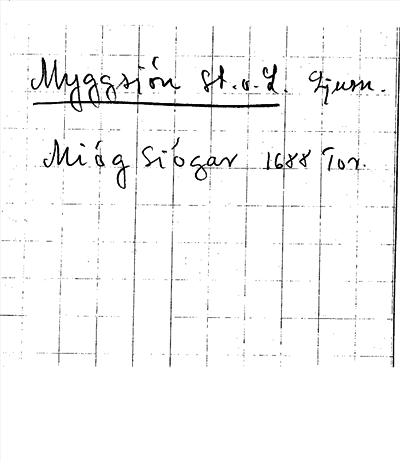 Myggsjön St. o. L. Djura.
Mióg Siógar 1688 Tor.